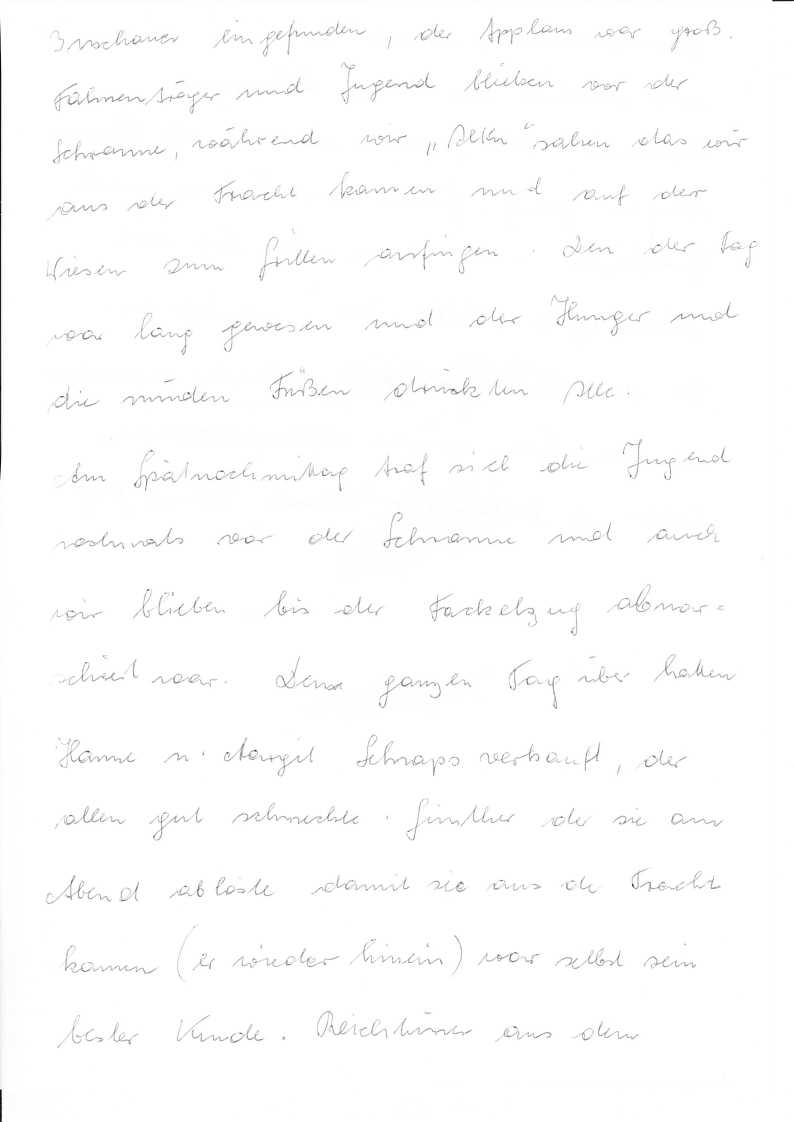 Zuschauer eingefunden, der Applaus war groß.
Fahnenträger und Jugend blieben vor der
Schranne, während wir „Alten“ sahen das wir
aus der Tracht kamen und auf der
Wiesen zum Grillen anfingen. Den der Tag
war lang gewesen und der Hunger und
die müden Füßen drückten alle.
Am Spätnachmittag traf sich die Jugend
nochmals vor der Schranne und auch
wir blieben bis der Fackelzug abmar=
schiert war. Denn ganzen Tag über hatten
Hanne u. Margit Schnaps verkauft, der
allen gut schmeckte. Günther der sie am
Abend ablöste damit sie aus de Tracht
kamen (er wieder hinein) war selbst sein
bester Kunde. Reichtümer aus dem